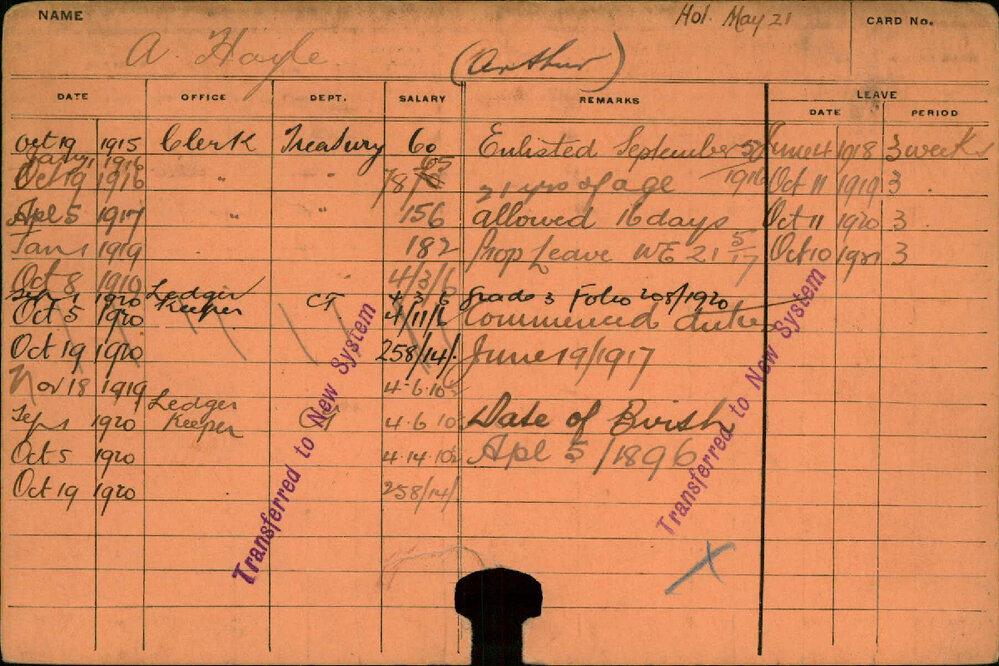 NAME
Hol. May 21
CARD No.
A. Hoyle (Arthur)
DATE OFFICE DEPT. SALARY REMARKS LEAVE
DATE PERIOD
Oct 19 1915 Clerk Treasury 60 Enlisted September June 4 1918 3 weeks
1916 65
Oct 19 1916 " " 78/ 21 yrs of age 1916 Oct 11 1919 3 "
Apl 5 1917 " " 156 allowed 16 days Oct 11 1920 3
Jan 1 1919 182 Prop Leave WE 21 5/17 Oct 10 1921 3
Oct 8 1910 4/3/6
Sep 1 1920 Ledger Keeper CT 4.3.6 Grade 3 Folio 208/1920
Oct 5 1920 4/11/6 Commenced duties
Oct 19 1920 258/14/. June 19/1917
Nov 18 1919 4.6.10½
Sep 1 1920 Ledger Keeper CT 4.6.10½ Date of Birth
Oct 5 1920 4.14.10½ Apl 5/1896
Oct 19 1920 258/14/
Transferred to New System
Transferred to New System